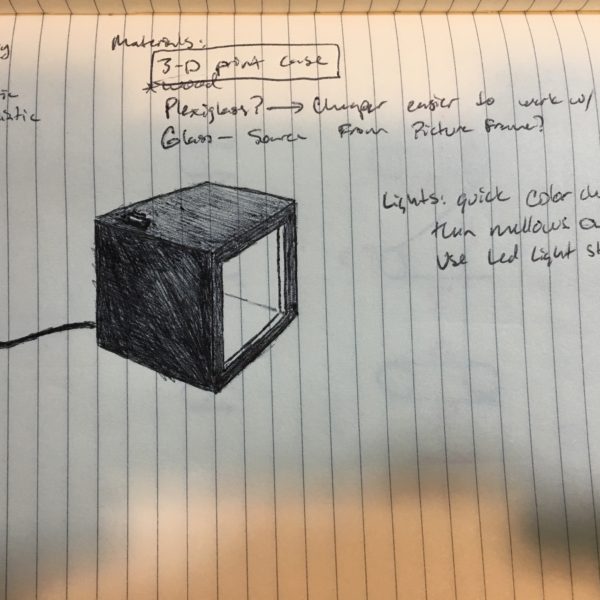 y
Materials:
3-D print case
*wood
ic
istic
Plexiglass? → Cheaper easier to work w/
Glass - Source From Picture Frame?
Lights: quick color
then mellows
Use Led Light